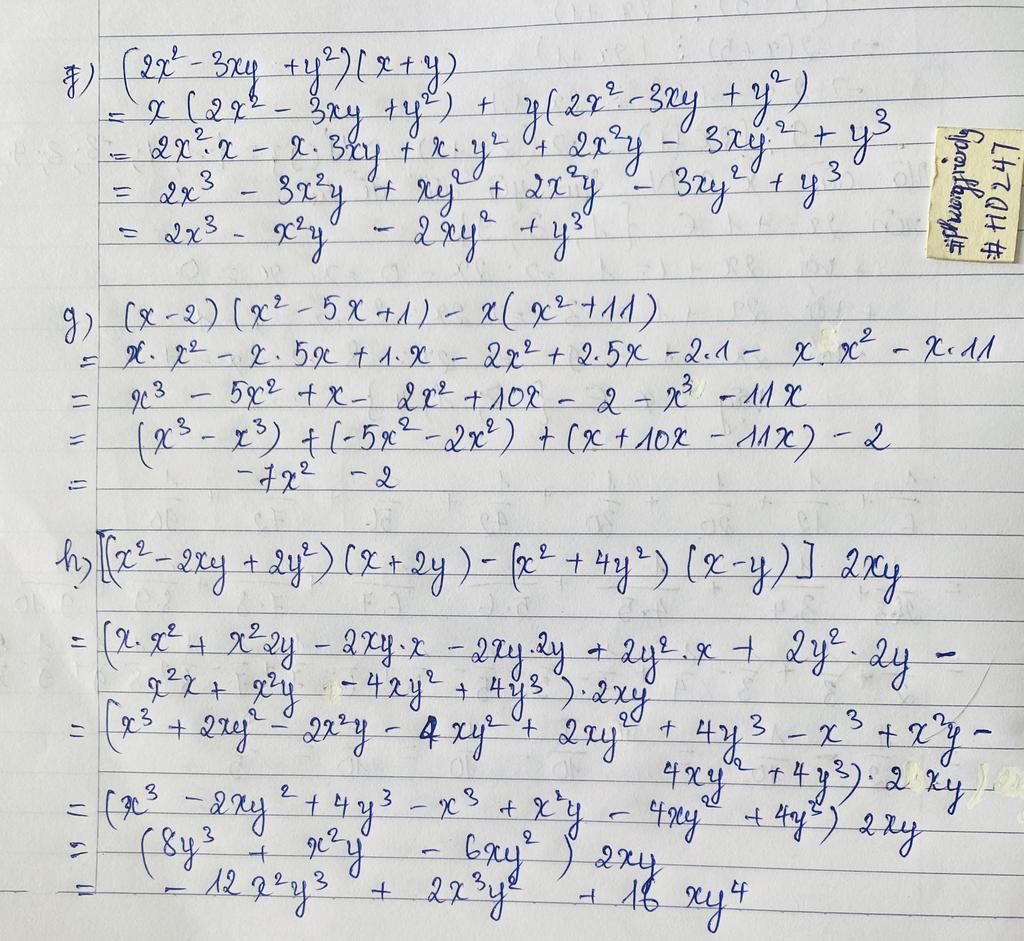 f) (2x² - 3xy + y²)(x + y)
= x (2x² - 3xy + y²) + y(2x² - 3xy + y²)
= 2x²·x - x·3xy + x·y² + 2x²y - 3xy·² + y³
= 2x³ - 3x²y + xy² + 2x²y - 3xy² + y³
= 2x³ - x²y - 2xy² + y³
# HQ247
g) (x - 2)(x² - 5x + 1) - x(x² + 11)
= x·x² - x·5x + 1·x - 2x² + 2·5x - 2·1 - x x² - x·11
= x³ - 5x² + x - 2x² + 10x - 2 - x³ - 11x
= (x³ - x³) + (-5x² - 2x²) + (x + 10x - 11x) - 2
= -7x² - 2
h) [(x² - 2xy + 2y²)(x + 2y) - (x² + 4y²)(x - y)] 2xy
= (x·x² + x²2y - 2xy·x - 2xy·2y + 2y²·x + 2y²·2y -
x²x + x²y - 4xy² + 4y³)·2xy
= (x³ + 2xy² - 2x²y - 4xy² + 2xy² + 4y³ - x³ + x²y -
4xy² + 4y³)·2xy
= (x³ - 2xy² + 4y³ - x³ + x²y - 4xy² + 4y³) 2xy
= (8y³ + x²y - 6xy²) 2xy
= - 12x²y³ + 2x³y² + 16 xy⁴